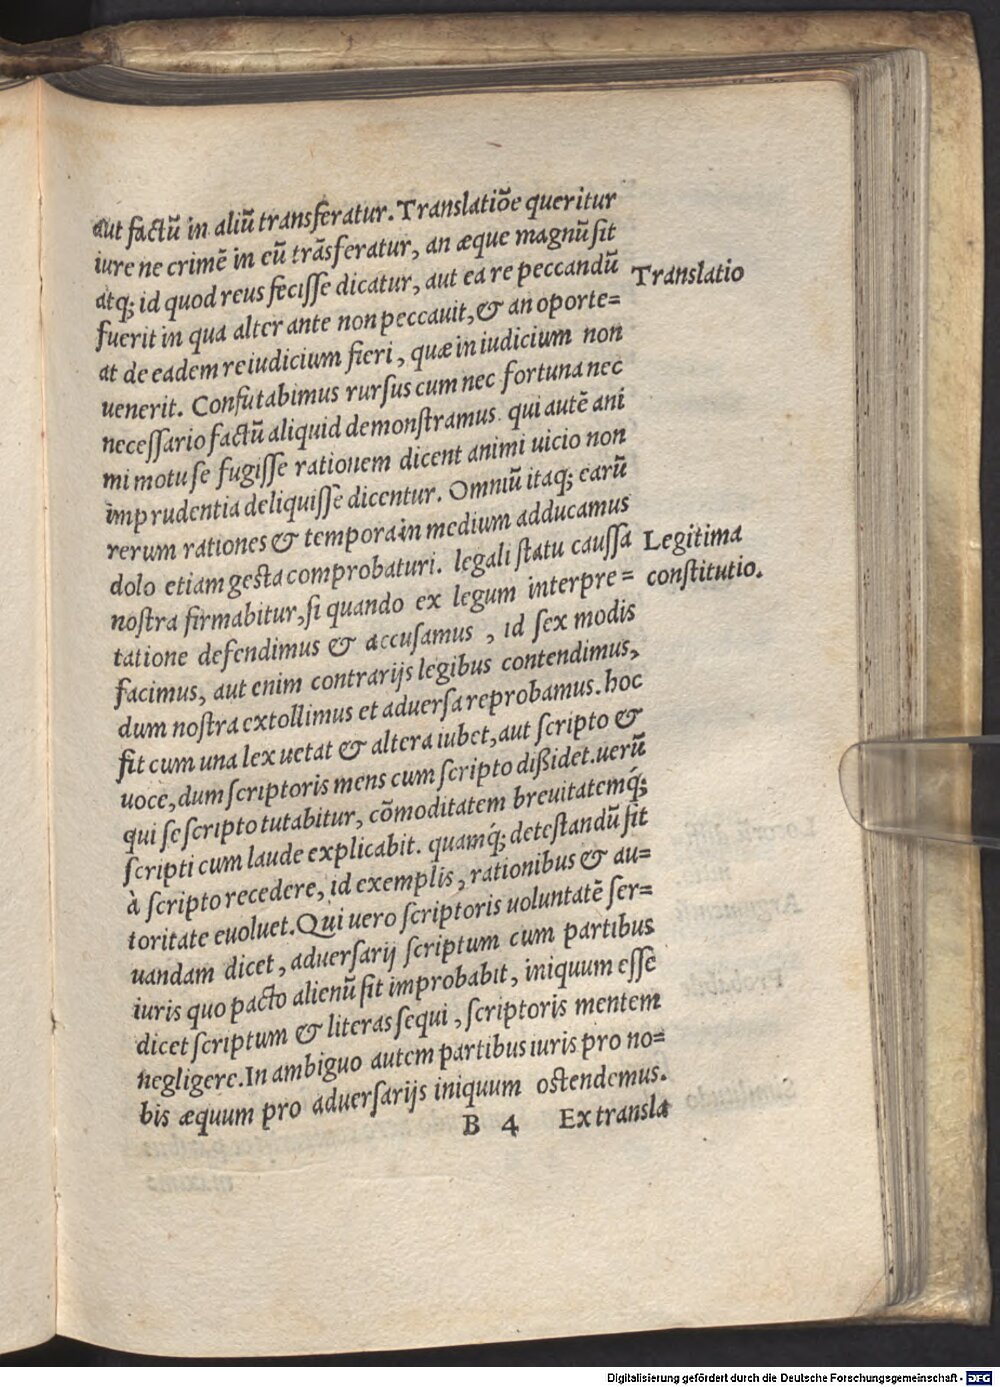 aut factū in aliū transferatur. Translatiōe queritur
iure ne crimē in eū trāsferatur, an æque magnū sit
atq; id quod reus fecisse dicatur, aut ea re peccandū
Translatio
fuerit in qua alter ante non peccauit, & an oporte=
at de eadem re iudicium fieri, quæ in iudicium non
uenerit. Confutabimus rursus cum nec fortuna nec
necessario factū aliquid demonstramus. qui autē ani
mi motu se fugisse rationem dicent animi uicio non
imprudentia deliquisse dicentur. Omniū itaq; earū
rerum rationes & tempora in medium adducamus
dolo etiam gesta comprobaturi. legali statu caussa
Legitima
constitutio.
nostra firmabitur, si quando ex legum interpre=
tatione defendimus & accusamus, id sex modis
facimus, aut enim contrarijs legibus contendimus,
dum nostra extollimus et aduersa reprobamus. hoc
fit cum una lex uetat & altera iubet, aut scripto &
uoce, dum scriptoris mens cum scripto dißidet. uerū
qui se scripto tutabitur, cōmoditatem breuitatemq́;
scripti cum laude explicabit. quamq́; detestandū sit
à scripto recedere, id exemplis, rationibus & au=
toritate euoluet. Qui uero scriptoris uoluntatē ser=
uandam dicet, aduersarij scriptum cum partibus
iuris quo pacto alienū sit improbabit, iniquum esse
dicet scriptum & literas sequi, scriptoris mentem
negligere. In ambiguo autem partibus iuris pro no=
bis æquum pro aduersarijs iniquum ostendemus.
B 4 Ex transla
Digitalisierung gefördert durch die Deutsche Forschungsgemeinschaft - DFG